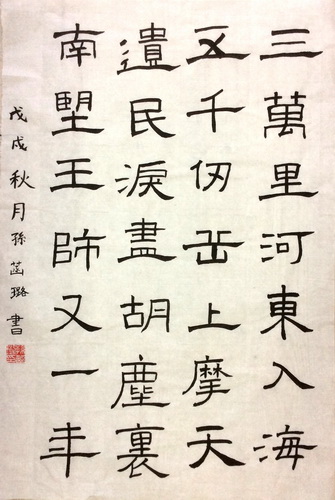 三萬里河東入海
五千仞岳上摩天
遺民淚盡胡塵裏
南朢王師又一年
戊戌秋月孫菡璐書